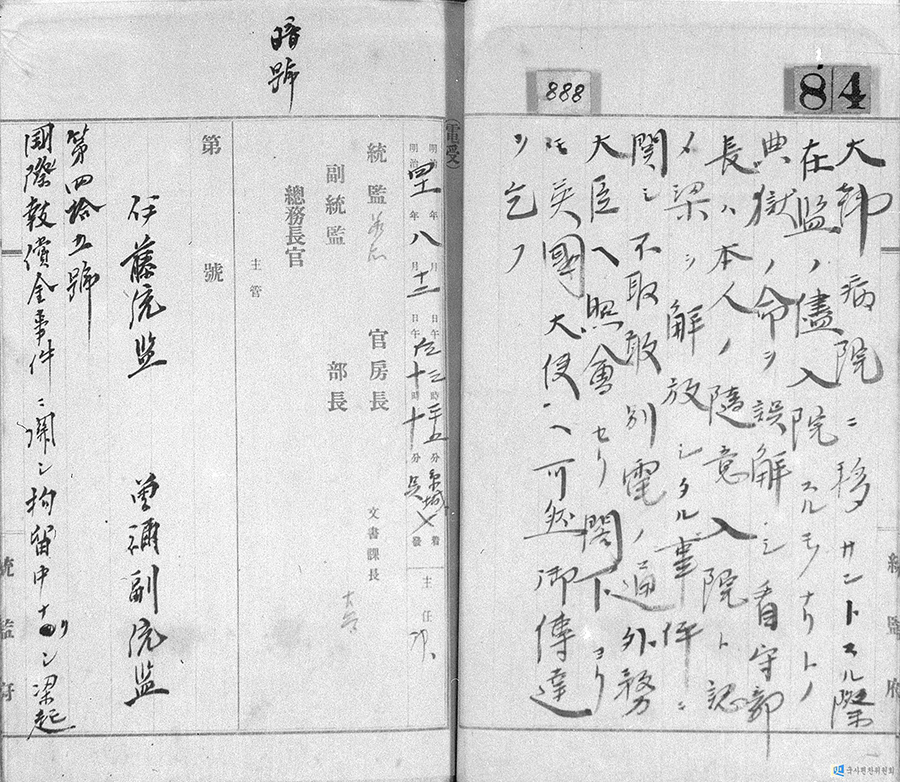 84
888
大韓病院ニ移サントスル際
在監ノ儘入院スルモノナリトノ
典獄ノ命ヲ誤解シ看守部
長ハ本人ノ隨意入院ト認
メ梁ヲ解放シタル事件ニ
関シ不取敢別電ノ通外務
大臣ヘ照會セリ閣下ヨリ
モ英國大使ヘ可然御傳達
ヲ乞フ
統監府
暗號
(電受)
明治四十一年八月十二日午后三時三十五分京城着
明治 年 月 日午 十時十分 發
主任
統監 官房長 文書課長
副統監 部長
總務長官
主管
第 號
伊藤統監 曽禰副統監
第四拾五號
国際報償金事件ニ関シ拘留中ナリシ梁起
統監府
국사편찬위원회